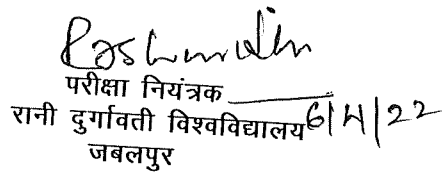 परीक्षा नियंत्रक
रानी दुर्गावती विश्वविद्यालय 6/4/22
जबलपुर